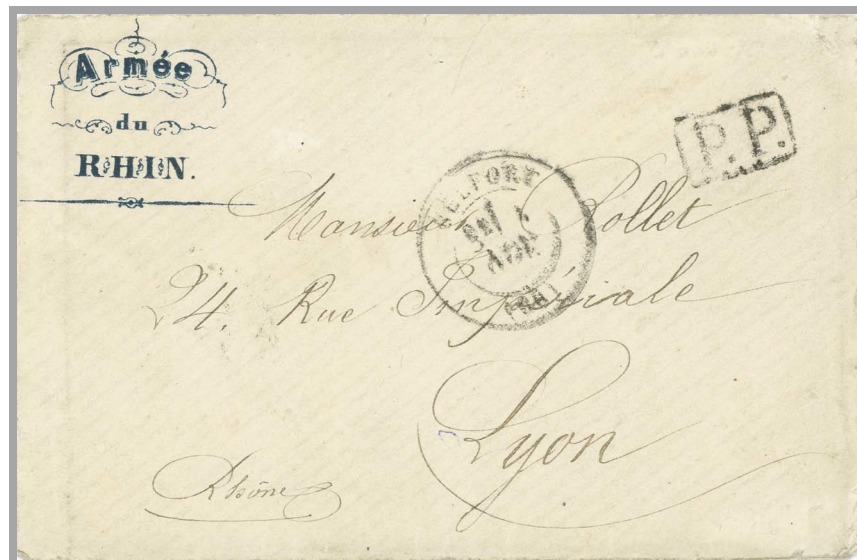 Armée
du
RHIN.
P.P.
BELFORT
AOU
(66)
Monsieur Pollet
24. Rue Impériale
Lyon
Rhône